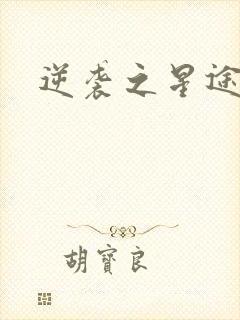 逆袭之星途
胡寶良